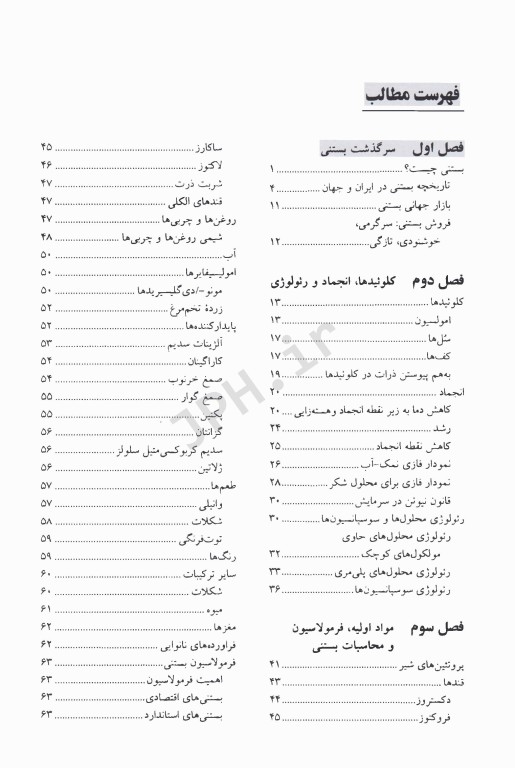 فهرست مطالب
فصل اول سرگذشت بستنی
بستنی چیست؟ ۱
تاریخچه بستنی در ایران و جهان ۴
بازار جهانی بستنی ۱۱
فروش بستنی: سرگرمی،
خوشنودی، تازگی ۱۲
فصل دوم کلوئیدها، انجماد و رئولوژی
کلوئیدها ۱۳
امولسیون ۱۳
سُل‌ها ۱۷
کف‌ها ۱۷
به‌هم پیوستن ذرات در کلوئیدها ۱۹
انجماد ۲۰
کاهش دما به زیر نقطه انجماد و هسته‌زایی ۲۰
رشد ۲۴
کاهش نقطه انجماد ۲۵
نمودار فازی نمک-آب ۲۶
نمودار فازی برای محلول شکر ۲۸
قانون نیوتن در سرمایش ۳۰
رئولوژی محلول‌ها و سوسپانسیون‌ها ۳۰
رئولوژی محلول‌های حاوی
مولکول‌های کوچک ۳۲
رئولوژی محلول‌های پلی‌مری ۳۳
رئولوژی سوسپانسیون‌ها ۳۶
فصل سوم مواد اولیه، فرمولاسیون
و محاسبات بستنی
پروتئین‌های شیر ۴۱
قندها ۴۳
دکستروز ۴۴
فروکتوز ۴۵
ساکارز ۴۵
لاکتوز ۴۶
شربت ذرت ۴۷
قندهای الکلی ۴۷
روغن‌ها و چربی‌ها ۴۷
شیمی روغن‌ها و چربی‌ها ۴۸
آب ۵۰
امولیسیفایرها ۵۰
مونو-/دی‌گلیسیریدها ۵۰
زردهٔ تخم‌مرغ ۵۲
پایدارکننده‌ها ۵۲
آلژینات سدیم ۵۳
کاراگینان ۵۴
صمغ خرنوب ۵۴
صمغ گوار ۵۵
پکتین ۵۵
گزانتان ۵۶
سدیم کربوکسی‌متیل سلولز ۵۶
ژلاتین ۵۶
طعم‌ها ۵۷
وانیلی ۵۷
شکلات ۵۸
توت‌فرنگی ۵۹
رنگ‌ها ۵۹
سایر ترکیبات ۶۰
شکلات ۶۰
میوه ۶۱
مغزها ۶۲
فراورده‌های نانوایی ۶۲
فرمولاسیون بستنی ۶۳
اهمیت فرمولاسیون ۶۳
بستنی‌های اقتصادی ۶۳
بستنی‌های استاندارد ۶۳
JPH.ir